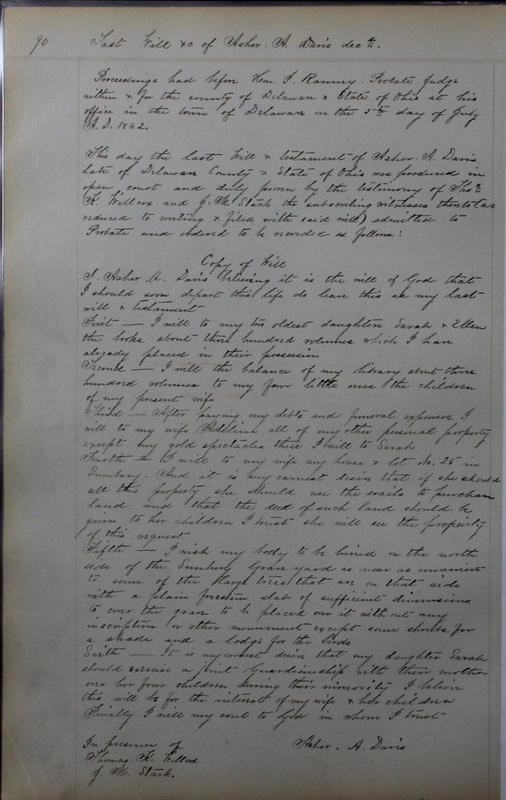 90 Last Will &c of Asher. A. Davis decd.
Proceedings had before Hon. T. Ranney. Probate Judge
within & for the county of Delaware & State of Ohio at his
office in the town of Delaware on the 5th day of July
A.D. 1862.
This day the last Will & testament of Asher. A. Davis
late of Delaware County & State of Ohio was produced in
open court and duly proven by the testimony of Thos
K. Willcox and J. M. Stark the subscribing witnesses thereto (as
reduced to writing & filed with said will) admitted to
Probate and ordered to be recorded as follows:
Copy of Will
I. Asher A. Davis believing it is the will of God that
I should soon depart this life do leave this as my last
will & testament
First — I will to my two oldest daughters Sarah & Ellen
the books about three hundred volumes which I have
already placed in their possession
Second — I will the balance of my library about three
hundred volumes to my four little ones the children
of my present wife
Third — After paying my debts and funeral expenses I
will to my wife Adeline all of my other personal property
except my gold spectacles these I will to Sarah
Fourth — I will to my wife my house & lot No. 25 in
Sunbury. And it is my earnest desire that if she should
sell this property she should use the avails to purchase
land and that the deed of such land should be
given to her children I trust she will see the propriety
of this request
Fifth — I wish my body to be buried on the north
side of the Sunbury Grave yard as near as convenient
to some of the large trees that are on that side
with a plain freestone slab of sufficient dimensions
to cover the grave to be placed over it without any
inscription or other monument except some shrubs for
a shade and a lodge for the birds
Sixth — It is my earnest desire that my daughter Sarah
should exercise a joint Guardianship with their mother
over her four children during their minority I believe
this will be for the interest of my wife & her children
Finally I will my soul to God in whom I trust
In presence of Asher. A. Davis
Thomas. K. Willcox
J. M. Stark.